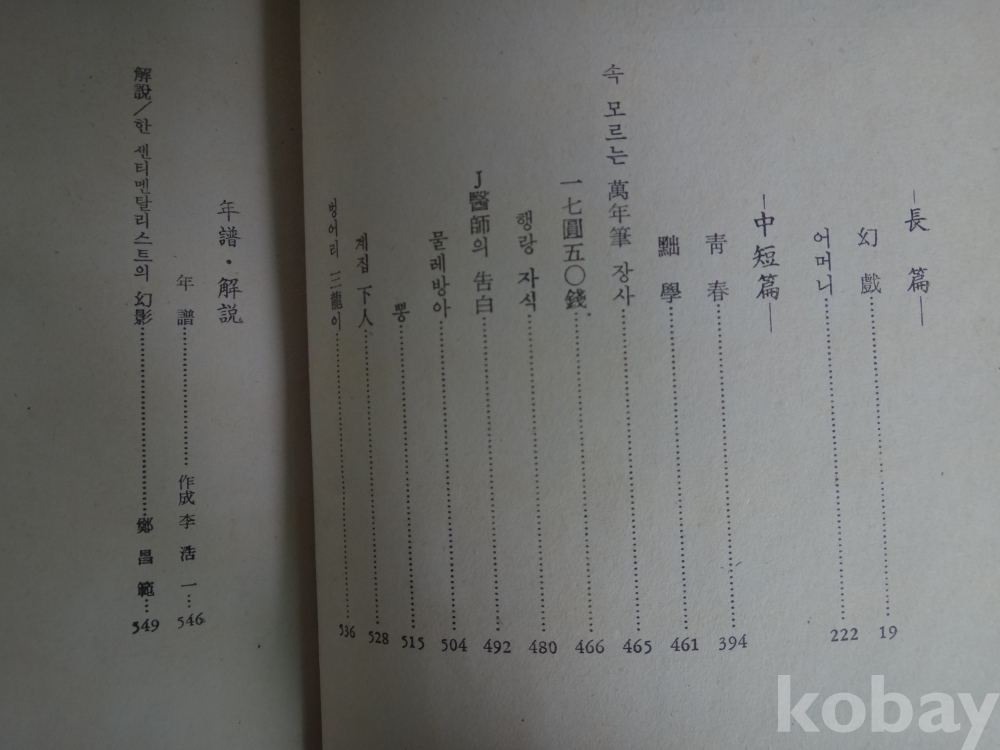 —長 篇—
幻 戲……19
어머니……222
—中短篇—
靑 春……394
黜 學……461
속 모르는 萬年筆 장사……465
一七圓五〇錢……466
행랑 자식……480
J醫師의 告白……492
물레방아……504
뽕……515
계집 下人……528
벙어리 三龍이……536
年譜·解說
年 譜……作成 李 浩 一…546
解說/한 센티멘탈리스트의 幻影……鄭 昌 範…549
kobay